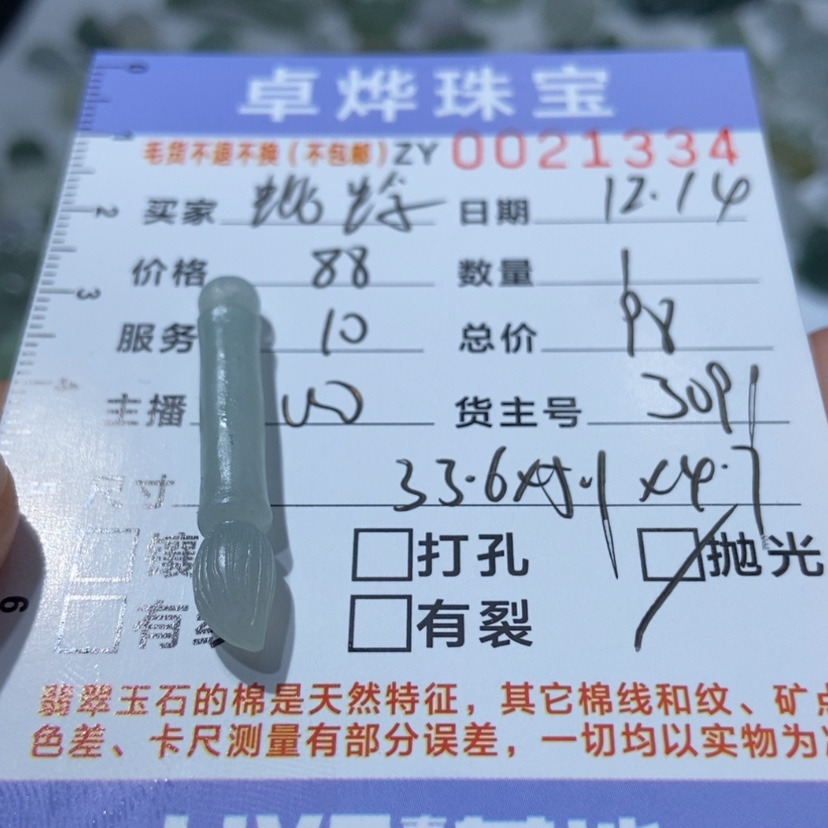 卓烨珠宝
毛货不退不换（不包邮）ZY 0021334
买家 日期 12.14
价格 88 数量 1
服务 10 总价 98
主播 货主号 3091
尺寸 33.6x5.1x4.7
镶 打孔 抛光
有 有裂
翡翠玉石的棉是天然特征，其它棉线和纹、矿点
色差、卡尺测量有部分误差，一切均以实物为